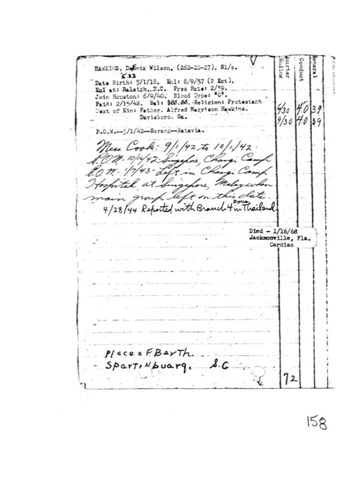 HAWKINS, Wilson, (262-22-27), S1/c.
Date Birth: 5/1/18. Enl: 8/9/37 (2 Ext).
Enl at: Raleigh, N.C. Pres Rate: 2/39.
Join Houston: 6/9/40. Blood Type: "O".
Paid: 2/15/42. Bal: Religion: Protestant
Next of Kin: Father. Alfred Harrison Hawkins.
Davisboro. Ga.
P.O.W.--3/1/42--Serang--Batavia.
Mess Cook: 9/1/42 to 10/1/42.
P.O.W. 10/9/42 Singapore, Changi Camp
P.O.W. 1/7/43 - left in Changi Camp
Hospital at Singapore, Malay when
main group left on this date
4/28/44 Reported with Branch 4 in Thailand
Died - 1/16/68
Jacksonville, Fla.
Cardiac
Quarter Ending
Conduct
General
4/30 40 39
9/30 40 39
Place of Berth.
Spartinbuarg. S.C
72
158